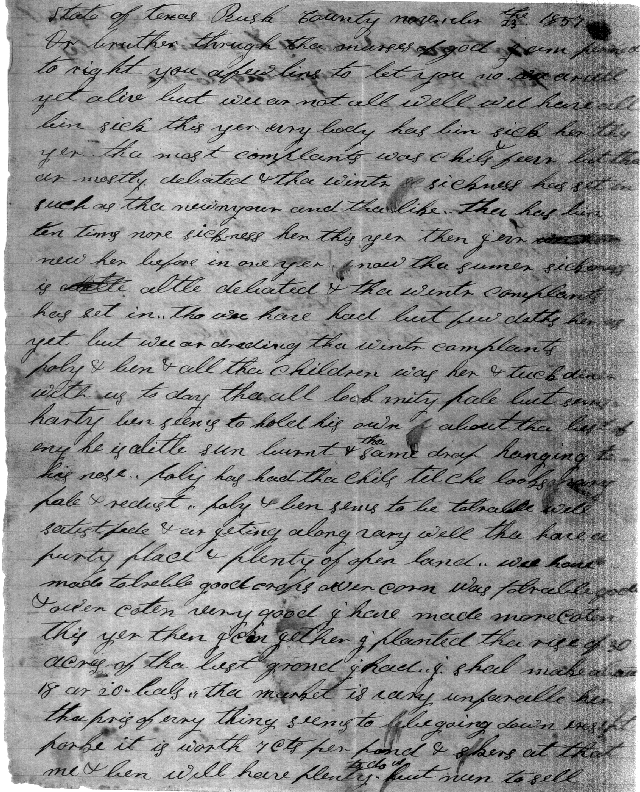 State of texas Rush County november 1857
Dr bruther through tha marses of god I am
to right you a few lins to let you no we ar all
yet alive but wee ar not all well wee have all
bin sick this yer evry body has bin sick her this
yer tha most complaints was chils & fevr but tha
ar mostly debiated & tha wintr sickness has set in
such as tha newmyour and tha like.. tha has bin
ten tims more sickness her this yer then I evr
new her before in one yer I now tha sumer sickness
is alttle debiated & tha wintr complants
has set in.. tho wee have had but few deths her as
yet but wee ar dreeding tha wintr complants
poly & ben & all tha children was her & tuck diner
with us to day tha all look mity pale but seem
harty ben seems to hold his own about tha best of
eny he is alitle sun burnt & tha same drap hanging to
his nose.. poly has had tha chils tel che looks
pale & redust .. poly & ben sems to be tolrable well
satisfide & ar geting along vary well tha have a
purty place & plenty of open land.. wee have
made tolrable good crops ower corn was tolrable good
& ower coten very good I have made more coten
this yer then I can gether I planted tha rise of 30
acres of tha best grond I had.. I shal make about
18 ar 20 bals.. tha market is vary unfavrable her
tha pris of evry thing seems to be going down except
porke it is worth 7 cts per pond & skers at that
me & ben will have plenty to do us but nun to sell